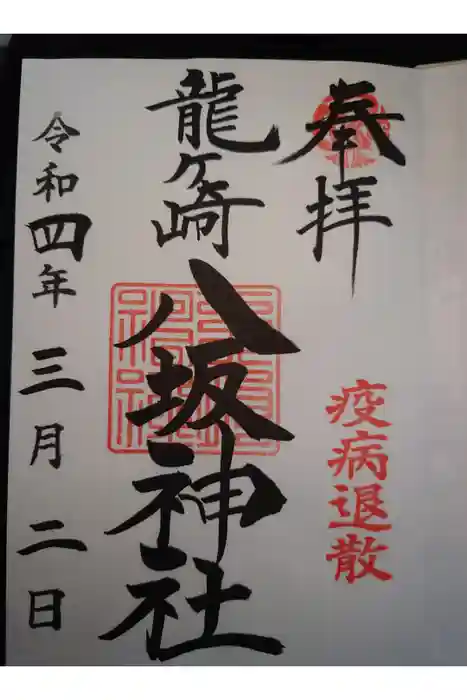 奉拝
疫病退散
龍ヶ崎
八坂神社
令和四年三月二日